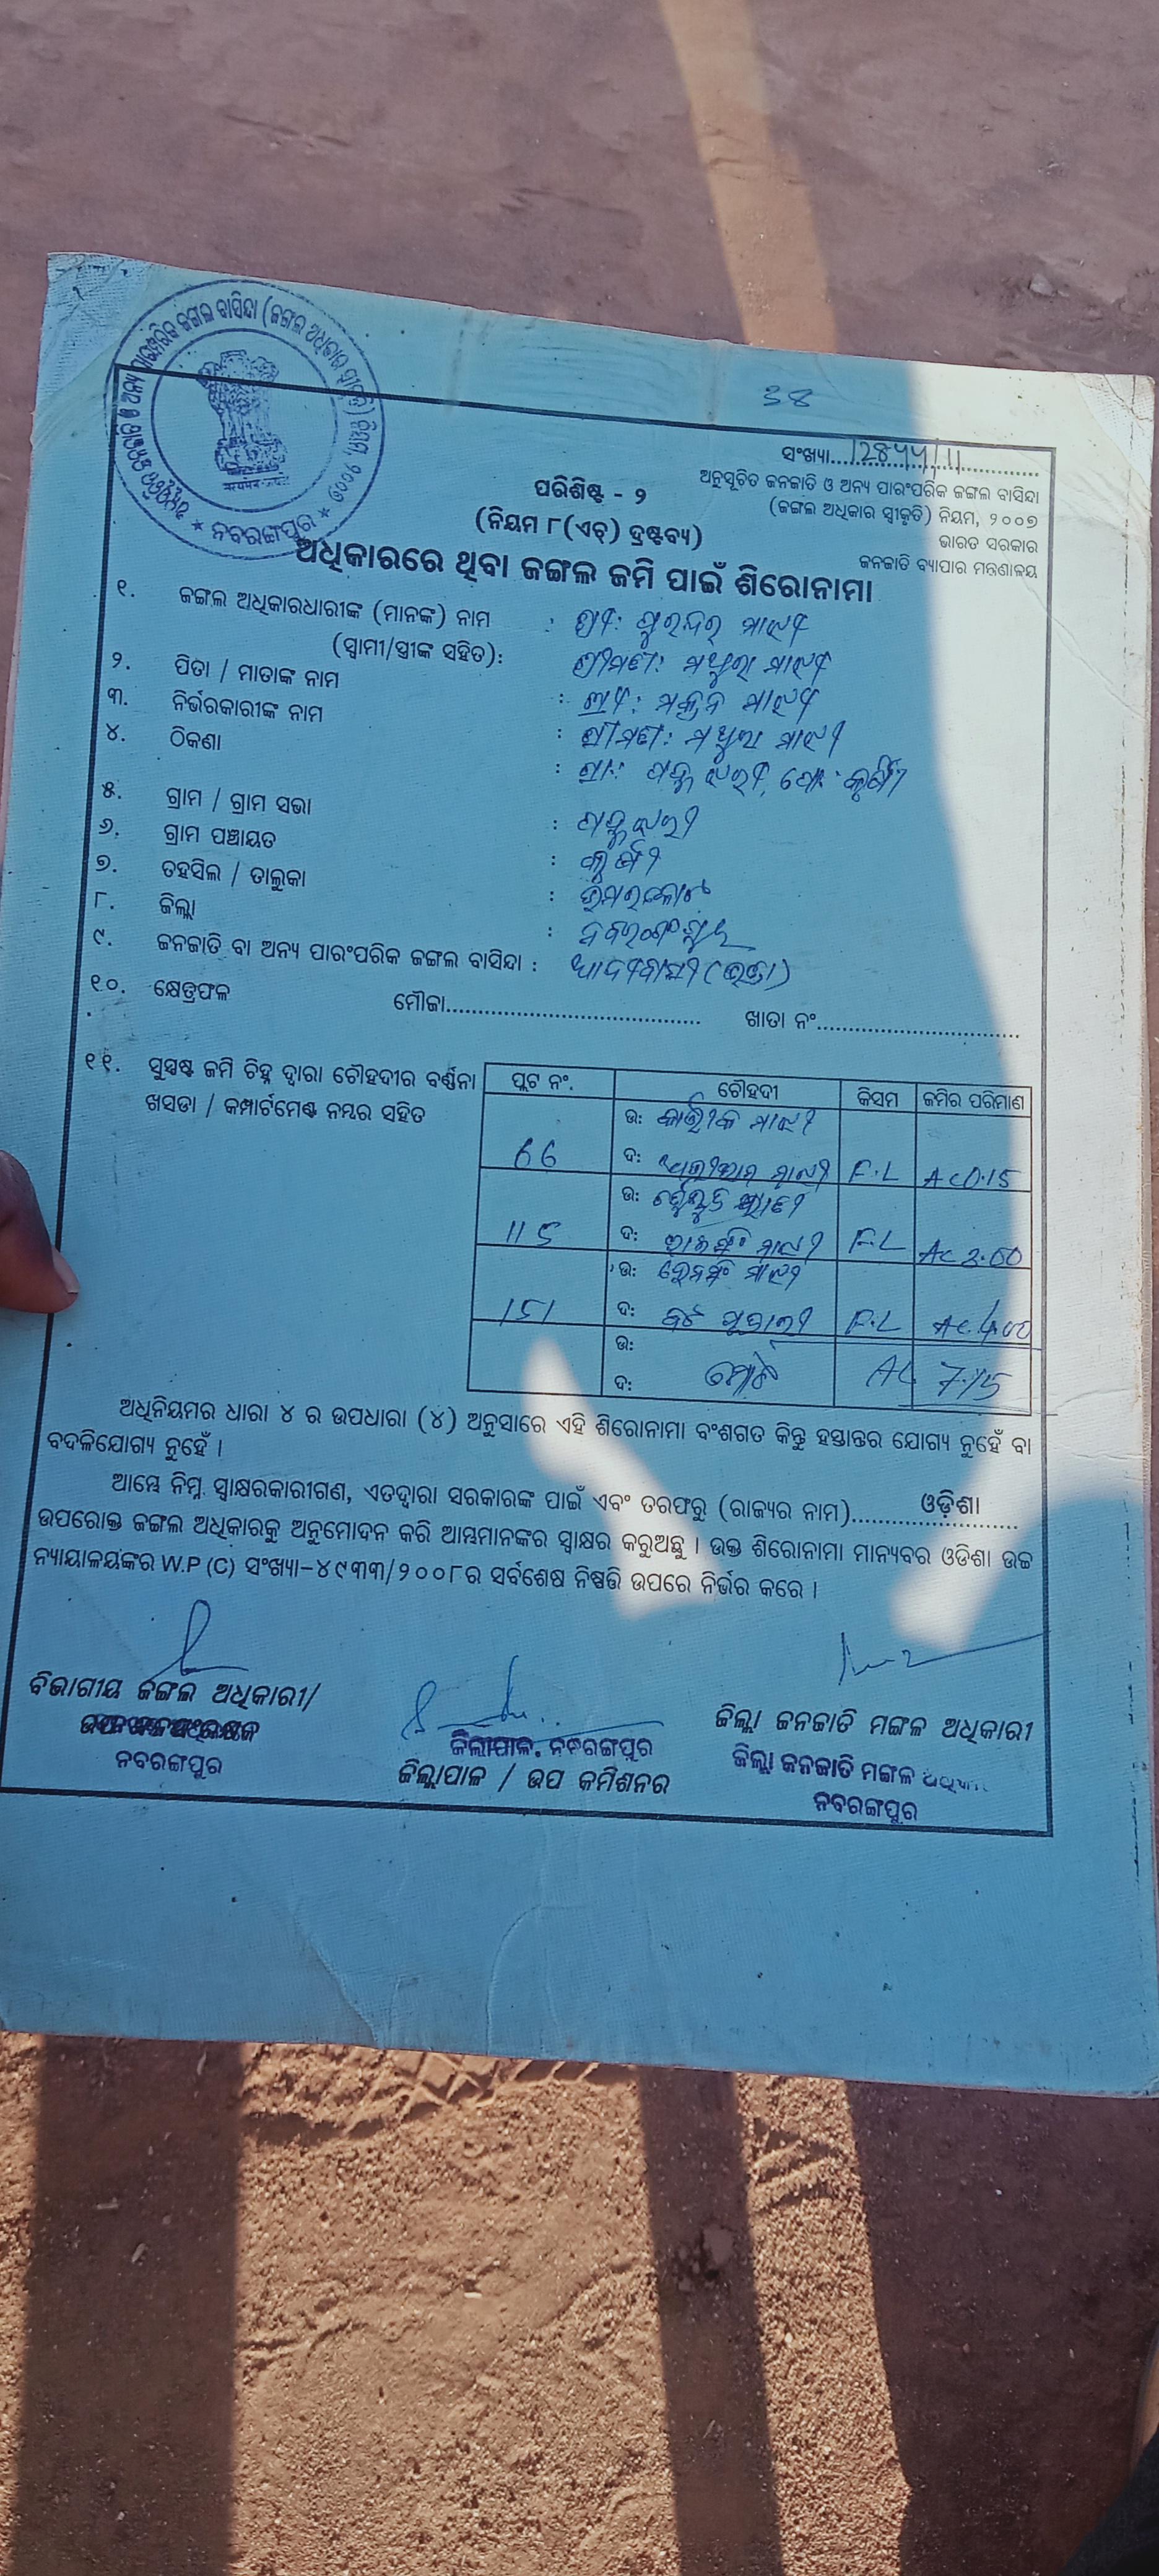 38
ସଂଖ୍ୟା
ଅନୁସୂଚିତ ଜନଜାତି ଓ ଅନ୍ୟ ପାରଂପରିକ ଜଙ୍ଗଲ ବାସିନ୍ଦା
(ଜଙ୍ଗଲ ଅଧିକାର ସ୍ୱୀକୃତି) ନିୟମ, ୨୦୦୭
ଭାରତ ସରକାର
ଜନଜାତି ବ୍ୟାପାର ମନ୍ତ୍ରଣାଳୟ
ନବରଙ୍ଗପୁର
ପରିଶିଷ୍ଟ - ୨
(ନିୟମ ୮(ଏଚ୍) ଦ୍ରଷ୍ଟବ୍ୟ)
ଅଧିକାରରେ ଥିବା ଜଙ୍ଗଲ ଜମି ପାଇଁ ଶିରୋନାମା
୧. ଜଙ୍ଗଲ ଅଧିକାରଧାରୀଙ୍କ (ମାନଙ୍କ) ନାମ :
(ସ୍ୱାମୀ/ସ୍ତ୍ରୀଙ୍କ ସହିତ):
୨. ପିତା / ମାତାଙ୍କ ନାମ :
୩. ନିର୍ଭରକାରୀଙ୍କ ନାମ :
୪. ଠିକଣା :
୫. ଗ୍ରାମ / ଗ୍ରାମ ସଭା :
୬. ଗ୍ରାମ ପଞ୍ଚାୟତ :
୭. ତହସିଲ / ତାଲୁକା : ଉମରକୋଟ
୮. ଜିଲ୍ଲା : ନବରଙ୍ଗପୁର
୯. ଜନଜାତି ବା ଅନ୍ୟ ପାରଂପରିକ ଜଙ୍ଗଲ ବାସିନ୍ଦା : ଆଦିବାସୀ
୧୦. କ୍ଷେତ୍ରଫଳ ମୌଜା........ ଖାତା ନଂ........
୧୧. ସୁସ୍ପଷ୍ଟ ଜମି ଚିହ୍ନ ଦ୍ୱାରା ଚୌହଦୀର ବର୍ଣ୍ଣନା
ଖସଡା / କମ୍ପାର୍ଟମେଣ୍ଟ ନମ୍ବର ସହିତ
ପ୍ଲଟ ନଂ. ଚୌହଦୀ କିସମ ଜମିର ପରିମାଣ
ଉ: କାର୍ତ୍ତିକ ମାଝୀ
66 ଦ: ମାଝୀ F.L Ac0.15
ଉ:
115 ଦ: ମାଝୀ F.L Ac 3.00
ଉ: ମାଝୀ
151 ଦ: F.L Ac.4.00
ଉ:
ଦ: ମୋଟ Ac 7.15
ଅଧିନିୟମର ଧାରା ୪ ର ଉପଧାରା (୪) ଅନୁସାରେ ଏହି ଶିରୋନାମା ବଂଶଗତ କିନ୍ତୁ ହସ୍ତାନ୍ତର ଯୋଗ୍ୟ ନୁହେଁ ବା
ବଦଳିଯୋଗ୍ୟ ନୁହେଁ ।
ଆମ୍ଭେ ନିମ୍ନ ସ୍ୱାକ୍ଷରକାରୀଗଣ, ଏତଦ୍ୱାରା ସରକାରଙ୍କ ପାଇଁ ଏବଂ ତରଫରୁ (ରାଜ୍ୟର ନାମ)........ଓଡ଼ିଶା........
ଉପରୋକ୍ତ ଜଙ୍ଗଲ ଅଧିକାରକୁ ଅନୁମୋଦନ କରି ଆମ୍ଭମାନଙ୍କର ସ୍ୱାକ୍ଷର କରୁଅଛୁ । ଉକ୍ତ ଶିରୋନାମା ମାନ୍ୟବର ଓଡିଶା ଉଚ୍ଚ
ନ୍ୟାୟାଳୟଙ୍କର W.P (C) ସଂଖ୍ୟା-୪୯୩୩/୨୦୦୮ର ସର୍ବଶେଷ ନିଷ୍ପତ୍ତି ଉପରେ ନିର୍ଭର କରେ ।
ବିଭାଗୀୟ ଜଙ୍ଗଲ ଅଧିକାରୀ/
ନବରଙ୍ଗପୁର
ଜିଲ୍ଲାପାଳ, ନବରଙ୍ଗପୁର
ଜିଲ୍ଲାପାଳ / ଉପ କମିଶନର
ଜିଲ୍ଲା ଜନଜାତି ମଙ୍ଗଳ ଅଧିକାରୀ
ଜିଲ୍ଲା ଜନଜାତି ମଙ୍ଗଳ
ନବରଙ୍ଗପୁର